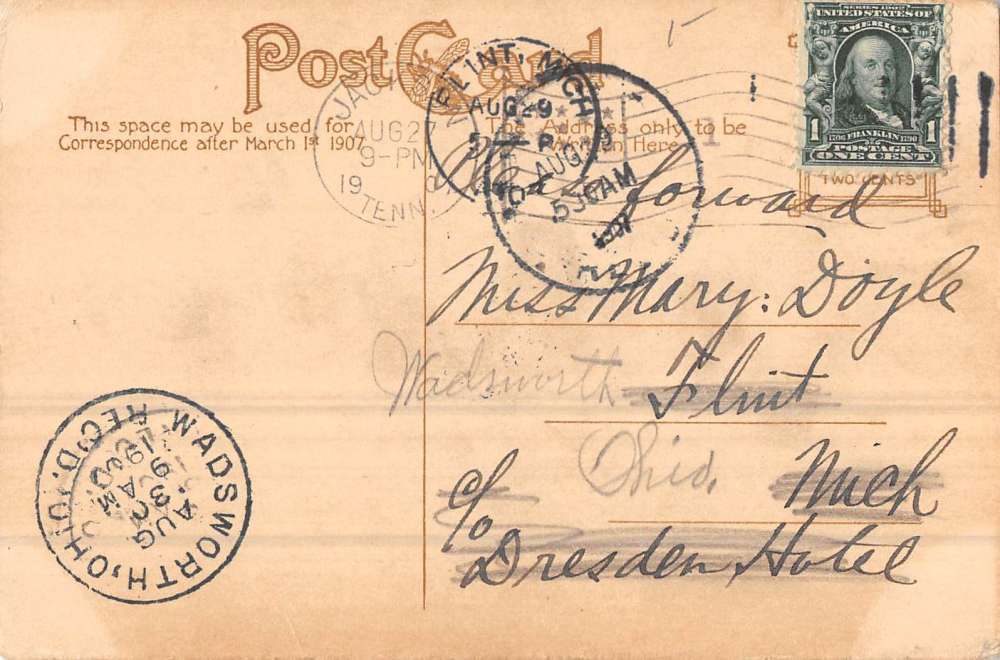 Post Card
This space may be used for
Correspondence after March 1st 1907.
The Address only to be
Written Here
SERIES 1902
UNITED STATES OF
AMERICA
1 1706 FRANKLIN 1790 1
POSTAGE
ONE CENT
TWO CENTS
AUG 27
9-PM
19
TENN.
FLINT, MICH
AUG 29
AUG
5 30 AM
1907
1
Please forward
Miss Mary: Doyle
Wadsworth Flint
Ohio, Mich
c/o
Dresden Hotel
WADSWORTH, OHIO
REC'D.
AUG
30
9 AM